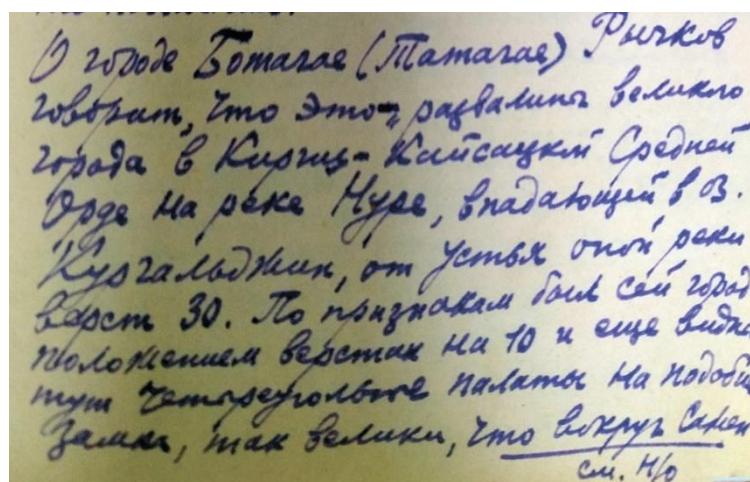 О городе Ботагае (Татагае) Рычков
говорит, что это „развалины великого
города в Киргиз-Кайсацкой Средней
Орде на реке Нуре, впадающей в оз.
Кургальджин, от устья оной реки
верст 30. По признакам был сей город
положением верстах на 10 и еще видны
тут четыреугольные палаты на подобие
замка, так велики, что вокруг сажен
см. н/о